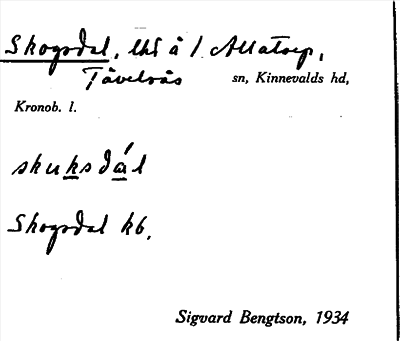 Skogsdal, lht å 1 Allatorp,
Tävelsås sn, Kinnevalds hd,
Kronob. l.
skuksdál
Skogsdal kb.
Sigvard Bengtson, 1934